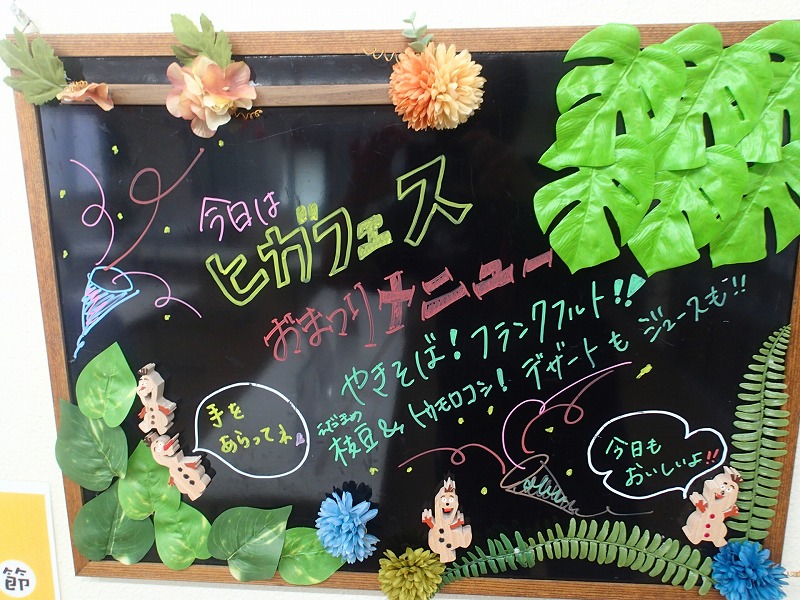 今日は
ヒガフェス
おまつりメニュー
やきそば！フランクフルト！！
えだまめ
枝豆&トウモロコシ！デザートもジュースも!!
手を
あらってネ
今日も
おいしいよ!!
節